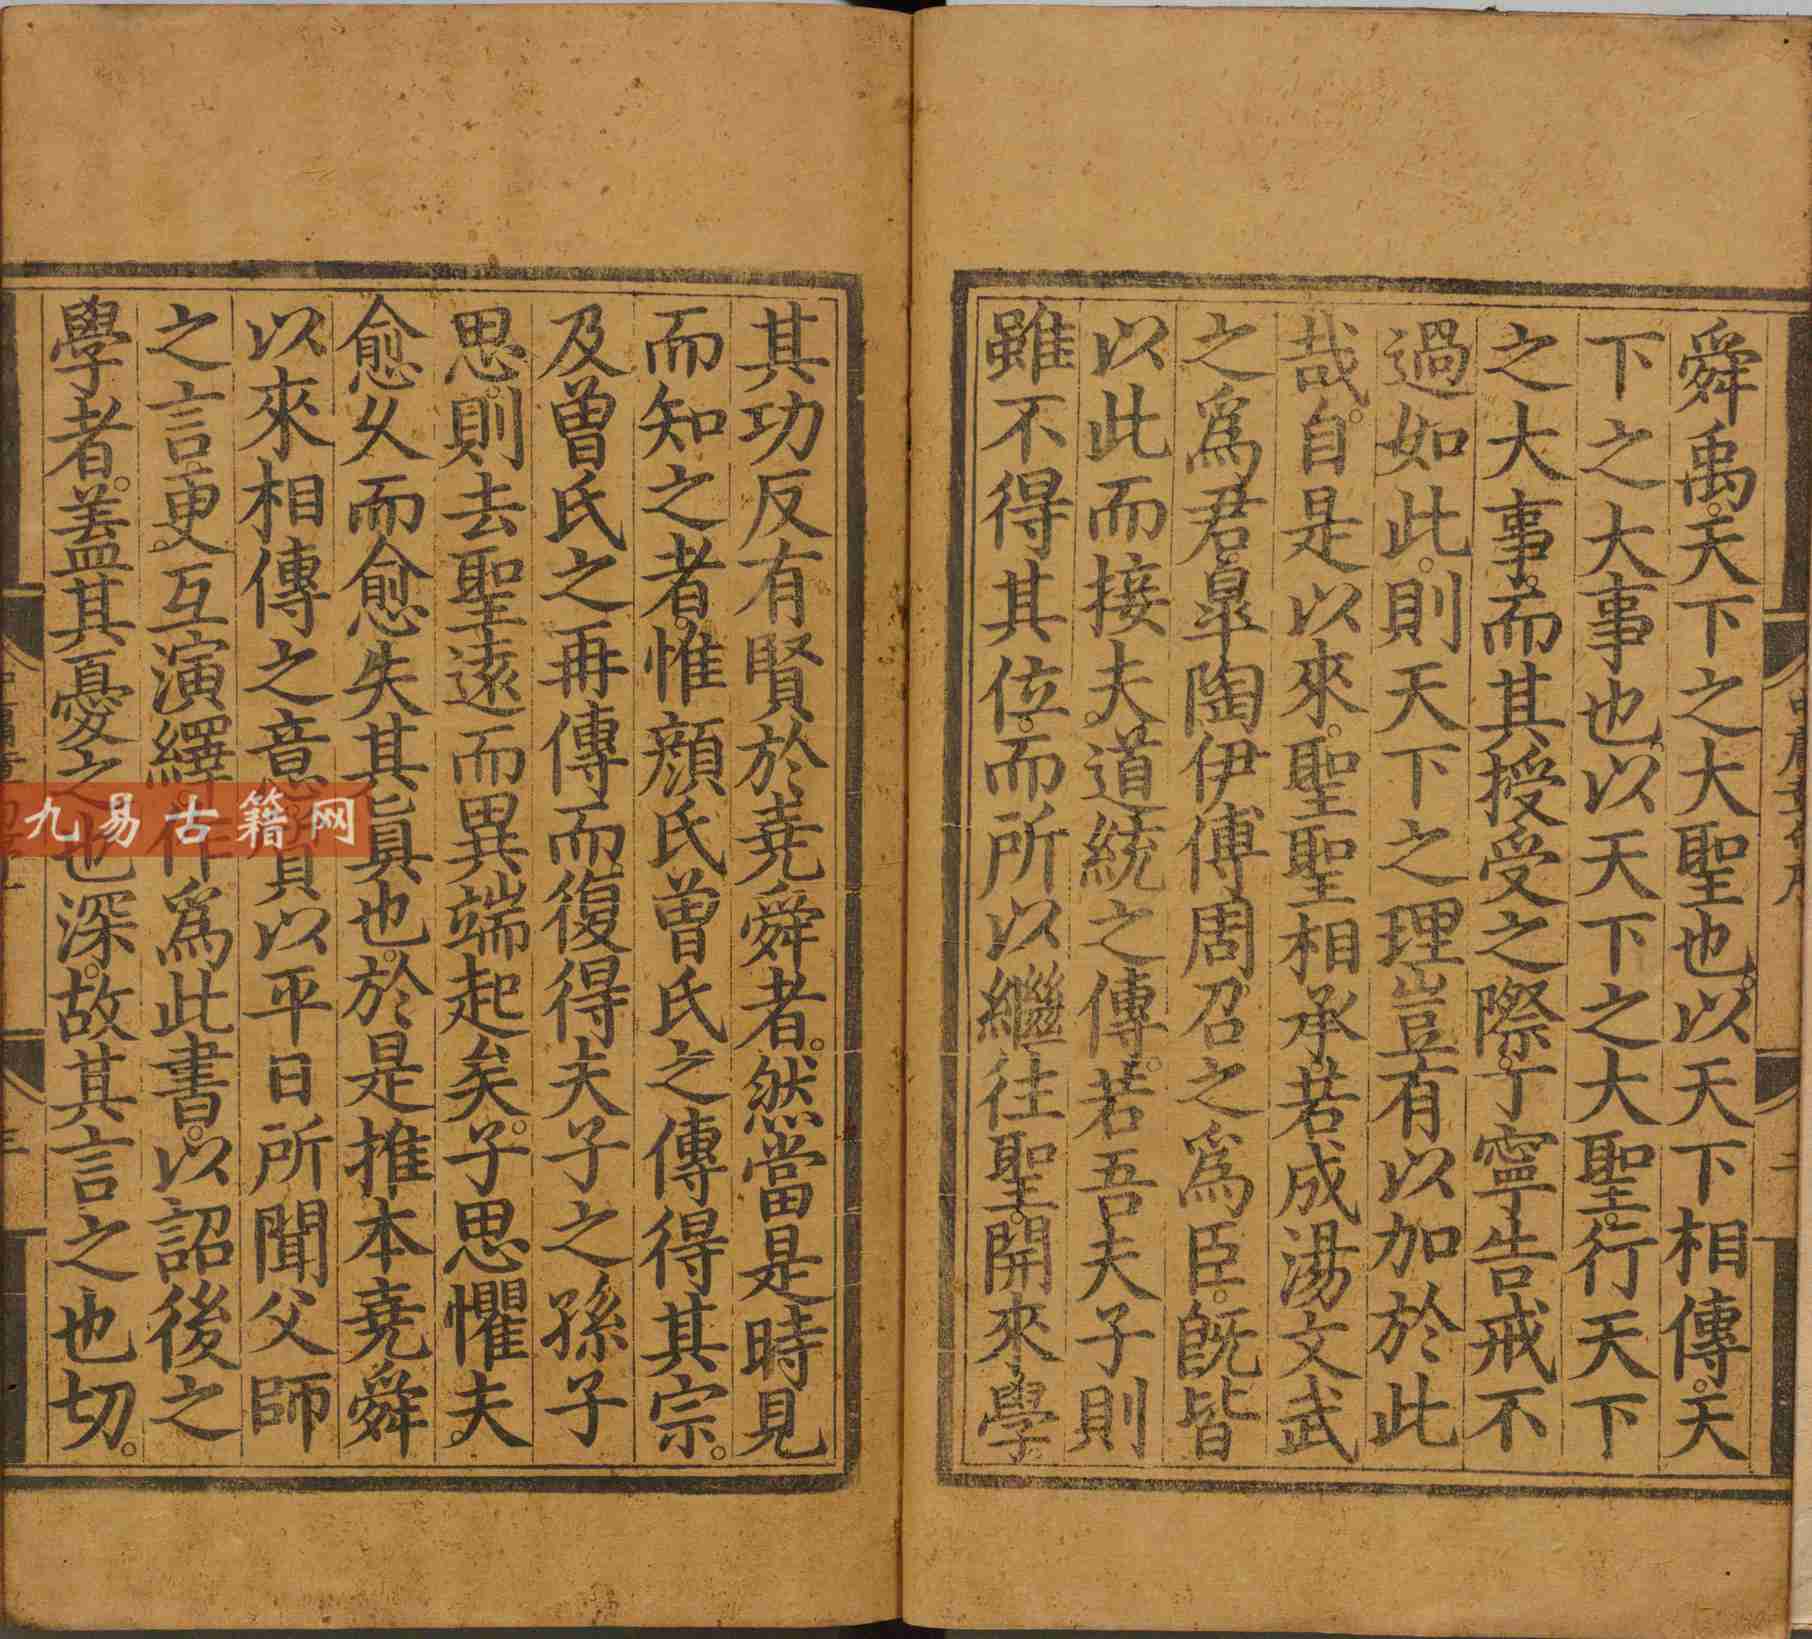 舜禹天下之大聖也以天下相傳天
下之大事也以天下之大聖行天下
之大事而其授受之際丁寧告戒不
過如此則天下之理豈有以加於此
哉自是以來聖聖相承若成湯文武
之爲君臯陶伊傅周召之爲臣旣皆
以此而接夫道統之傳若吾夫子則
雖不得其位而所以繼往聖開來學
其功反有賢於堯舜者然當是時見
而知之者惟顔氏曾氏之傳得其宗
及曾氏之再傳而復得夫子之孫子
思則去聖遠而異端起矣子思懼夫
愈久而愈失其眞也於是推本堯舜
以來相傳之意質以平日所聞父師
之言更互演繹作爲此書以詔後之
學者葢其憂之也深故其言之也切
九易古籍网